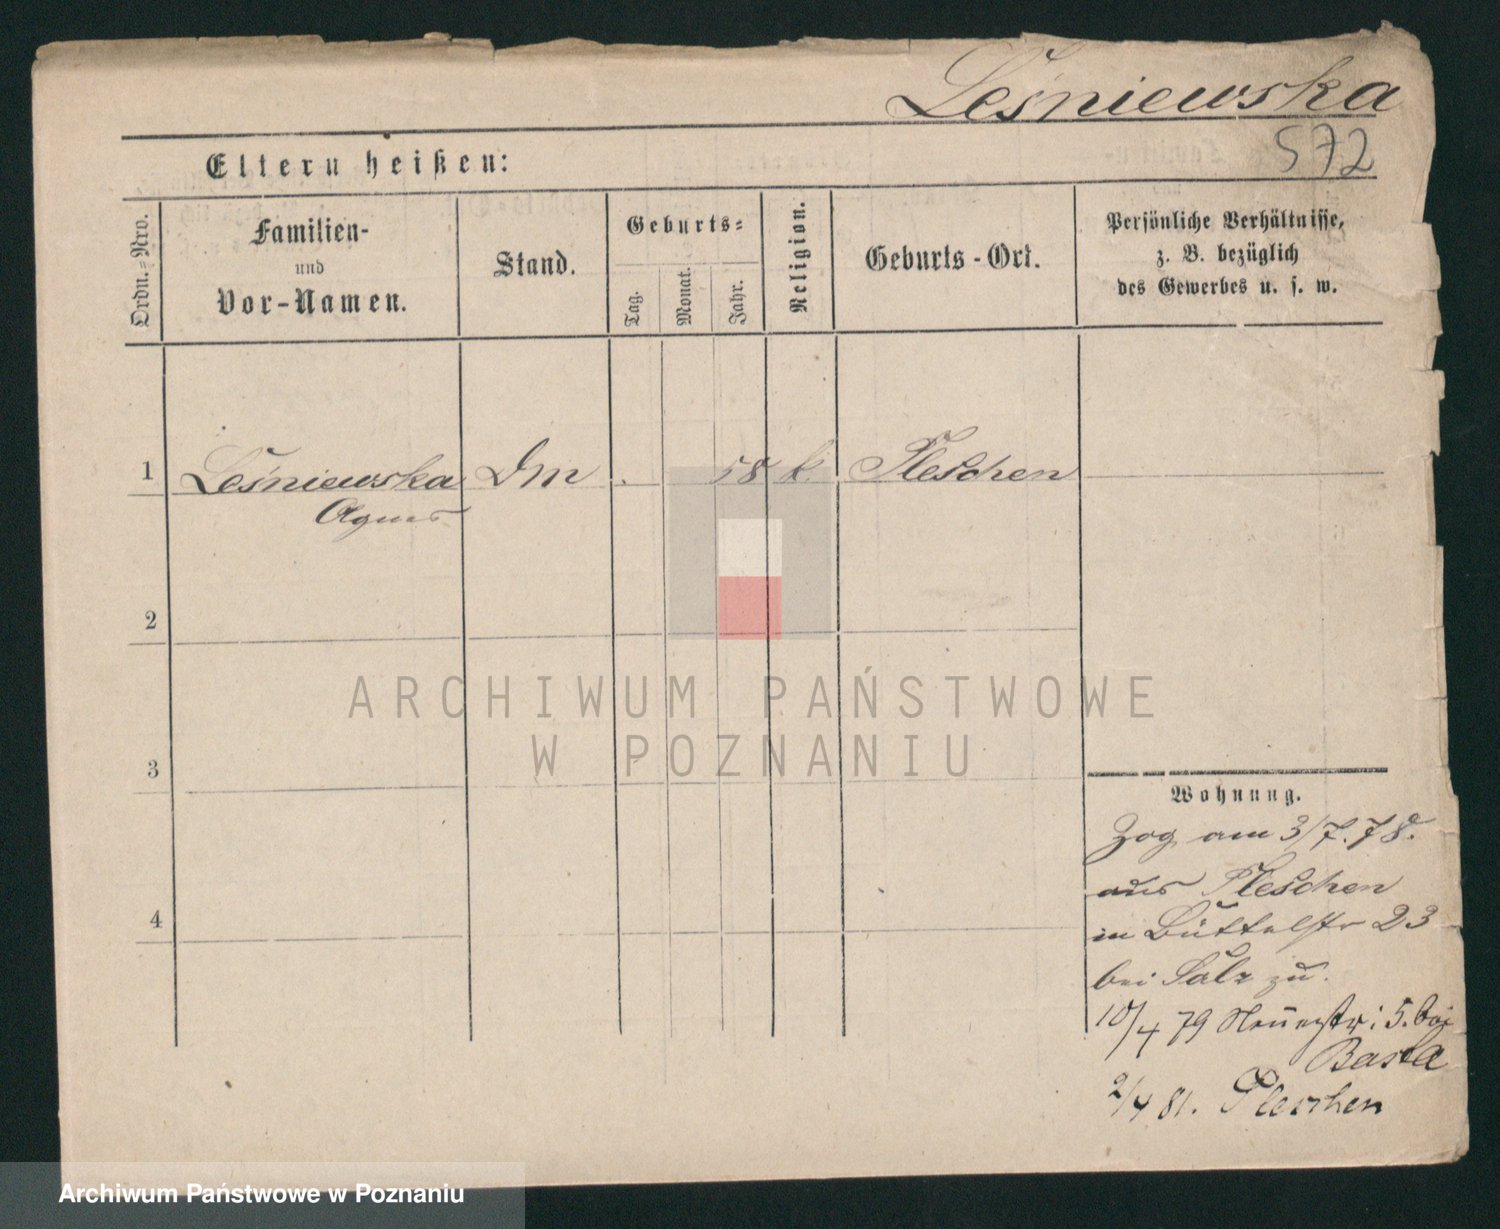 Leśniewska
572
Eltern heißen:
Ordn.=Nro.
Familien-
und
Vor-Namen.
Stand.
Geburts=
Tag.
Monat.
Jahr.
Religion.
Geburts-Ort.
Persönliche Verhältnisse,
z. B. bezüglich
des Gewerbes u. s. w.
1 Leśniewska Dm 58 k. Pleschen
Agnes
2
3
4
ARCHIWUM PAŃSTWOWE
W POZNANIU
Wohnung.
Zog am 3/7.78.
aus Pleschen
in Büttelstr 23
bei Salz zu.
10/4 79 Neuestr: 5. bei
Basta
2/4 81. Pleschen
Archiwum Państwowe w Poznaniu